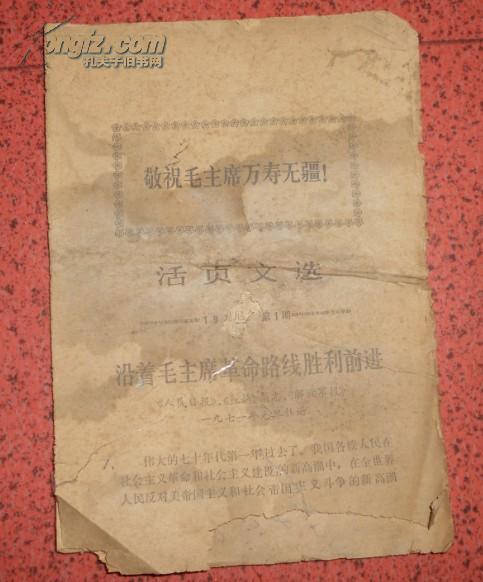 kongfz.com
孔夫子旧书网
敬祝毛主席万寿无疆!
活页文选
第1期
沿着毛主席革命路线胜利前进
《人民日报》、《红旗》杂志、《解放军报》
一九七一年元旦社论
伟大的七十年代第一年过去了。我国各族人民在
社会主义革命和社会主义建设的新高潮中,在全世界
人民反对美帝国主义和社会帝国主义斗争的新高潮